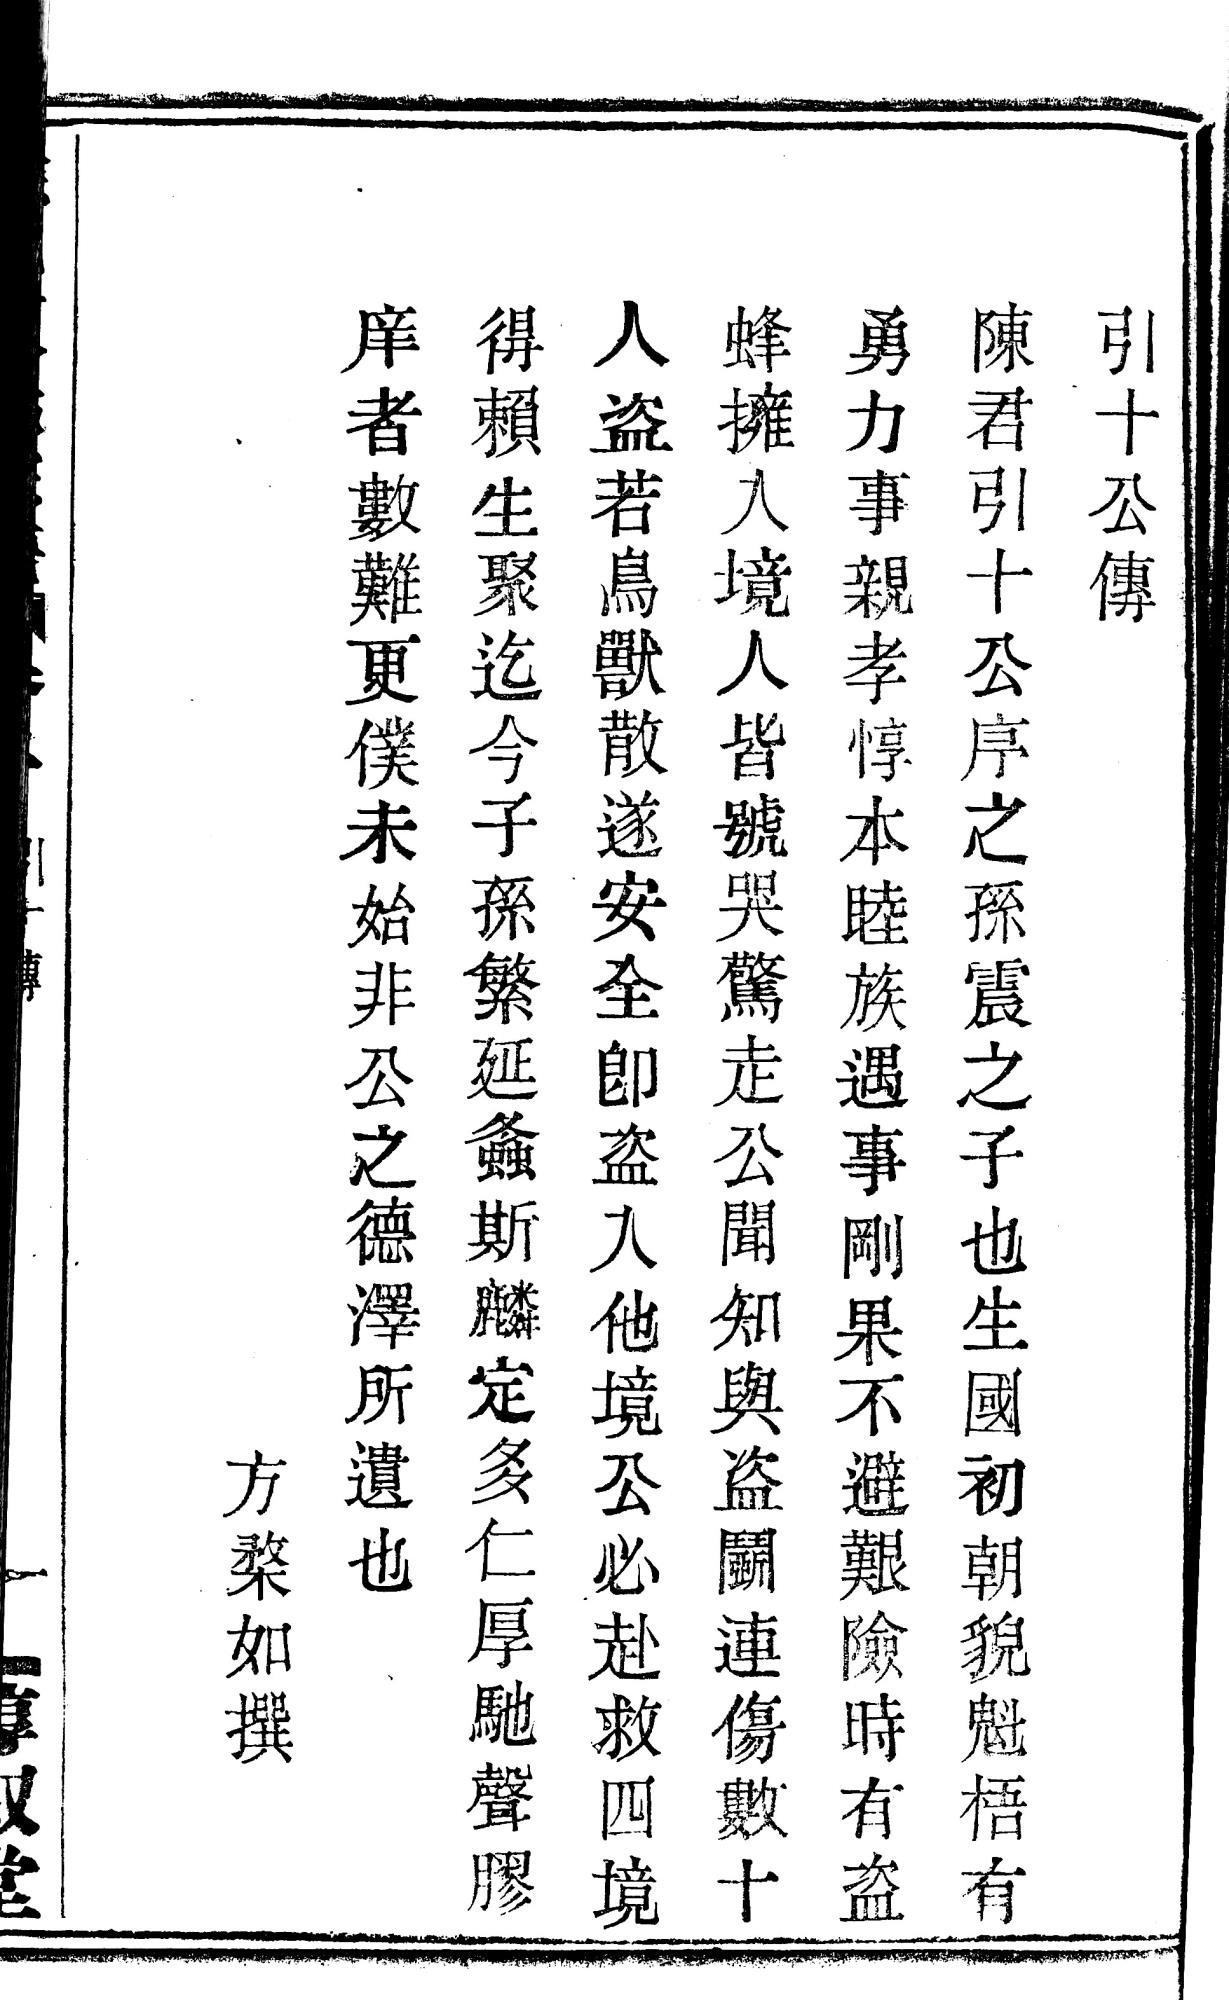 引十公傳
陳君引十公序之孫震之子也生國初朝貌魁梧有
勇力事親孝惇本睦族遇事剛果不避艱險時有盜
蜂擁入境人皆號哭驚走公聞知與盜鬭連傷數十
人盜若鳥獸散遂安全卽盜入他境公必赴救四境
得賴生聚迄今子孫繁延螽斯麟定多仁厚馳聲膠
庠者數難更僕未始非公之德澤所遺也
方棃如撰
引十傳
一
惇叙堂